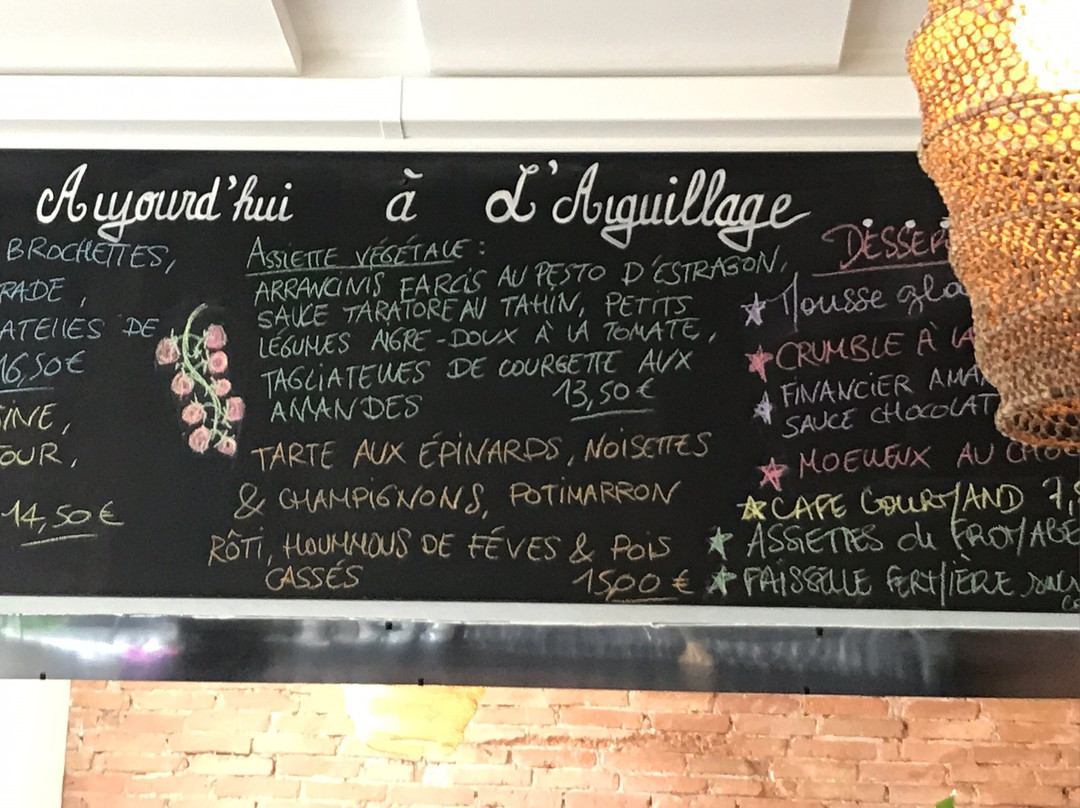 Aujourd'hui à L'Aiguillage
BROCHETTES,
RADE,
ATELLES DE
16,50€
SINE,
OUR,
14,50€
ASSIETTE VÉGÉTALE :
ARRANCINIS FARCIS AU PESTO D'ESTRAGON,
SAUCE TARATORE AU TAHIN, PETITS
LÉGUMES AIGRE-DOUX À LA TOMATE,
TAGLIATELLES DE COURGETTE AUX
AMANDES 13,50€
TARTE AUX ÉPINARDS, NOISETTES
& CHAMPIGNONS, POTIMARRON
RÔTI, HOUMMOUS DE FÉVES & POIS
CASSÉS 1500 €
DESSER
Mousse gla
CRUMBLE À LA
FINANCIER AMAN
SAUCE CHOCOLAT
MOELLEUX AU CHO
CAFE GOURMAND 7,
ASSIETTES de FROMAGE
FAISSELLE FERMIÈRE